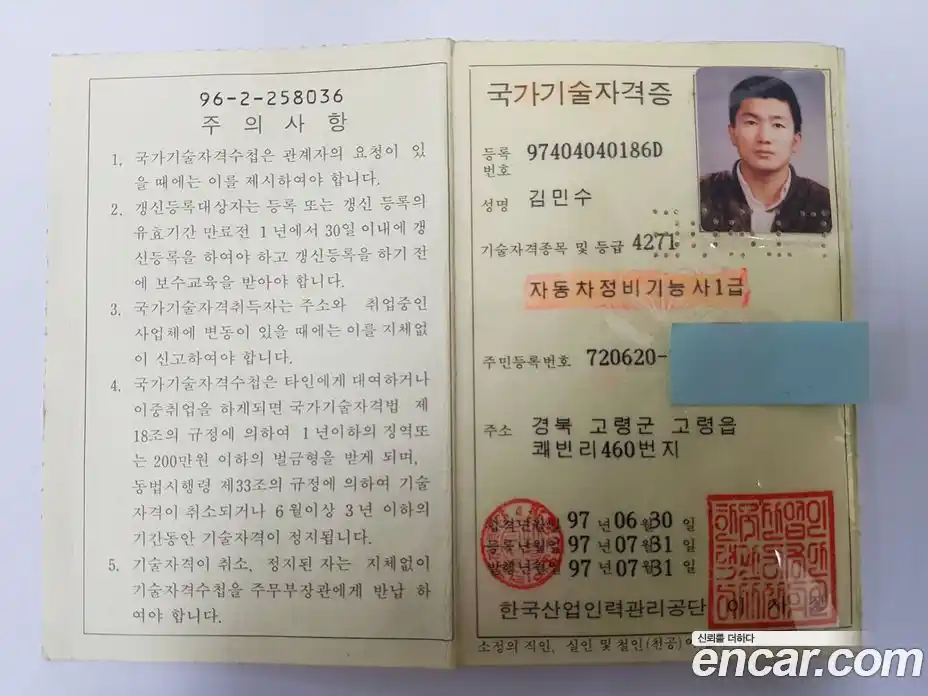 96-2-258036
주 의 사 항
1. 국가기술자격수첩은 관계자의 요청이 있
을 때에는 이를 제시하여야 합니다.
2. 갱신등록대상자는 등록 또는 갱신 등록의
유효기간 만료전 1년에서 30일 이내에 갱
신등록을 하여야 하고 갱신등록을 하기 전
에 보수교육을 받아야 합니다.
3. 국가기술자격취득자는 주소와 취업중인
사업체에 변동이 있을 때에는 이를 지체없
이 신고하여야 합니다.
4. 국가기술자격수첩은 타인에게 대여하거나
이중취업을 하게되면 국가기술자격법 제
18조의 규정에 의하여 1년이하의 징역또
는 200만원 이하의 벌금형을 받게 되며,
동법시행령 제33조의 규정에 의하여 기술
자격이 취소되거나 6월이상 3년 이하의
기간동안 기술자격이 정지됩니다.
5. 기술자격이 취소, 정지된 자는 지체없이
기술자격수첩을 주무부장관에게 반납 하
여야 합니다.
국가기술자격증
등록번호 97404040186D
성명 김민수
기술자격종목 및 등급 4271
자동차정비기능사1급
주민등록번호 720620-
주소 경북 고령군 고령읍
쾌빈리460번지
합격년월일 97년 06월 30일
등록년월일 97년 07월 31일
발행년월일 97년 07월 31일
한국산업인력관리공단
소정의 직인, 실인 및 철인(천공)
신뢰를 더하다
encar.com